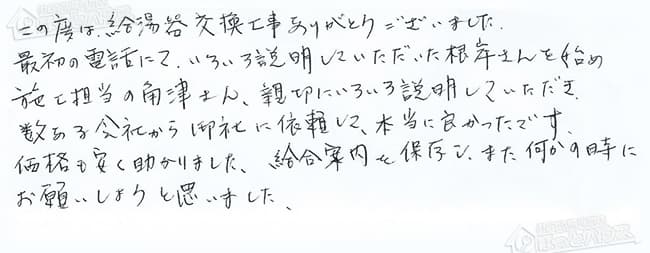 この度は、給湯器交換工事ありがとうございました。
最初の電話にて、いろいろ説明していただいた根岸さんを始め
施工担当の角津さん、親切にいろいろ説明していただき、
数ある会社から御社に依頼して、本当に良かったです。
価格も安く助かりました、 給合案内を保存し、また何かの時に
お願いしようと思いました、